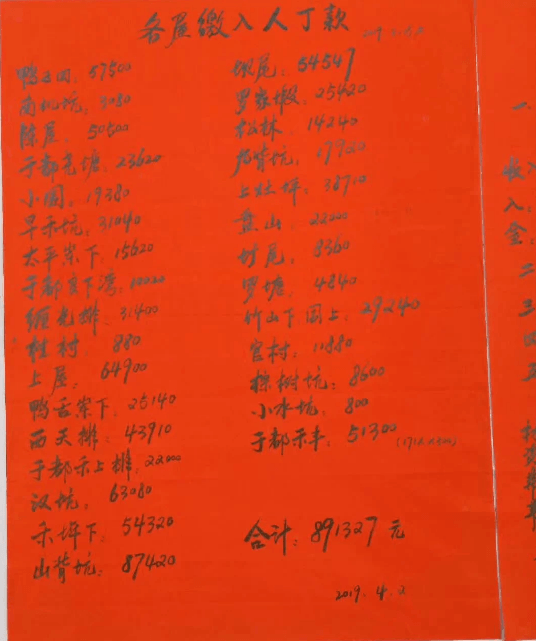 各屋缴入人丁款
鸭舌田：57500
南坑：9080
陈屋：50500
于都尧塘：23620
小園：19380
旱禾坑：31040
太平崇下：15620
于都下湾：10020
排：31400
桂村 880
上屋：64900
鸭舌崇下：25140
西天排：43910
于都禾上排：22000
汉坑：63080
禾坪下：54320
山背坑：87420
坝尾：54547
罗家塅：25420
松林：14240
背坑：17920
上坪：38710
盘山：22000
村尾：8360
罗塘：4840
竹山下園上：29240
官村：11880
樹坑：8600
小水坑：800
于都禾丰：51300
合计：891327元
2019.4.2
一
收入
入：
金：
二
三
四
五